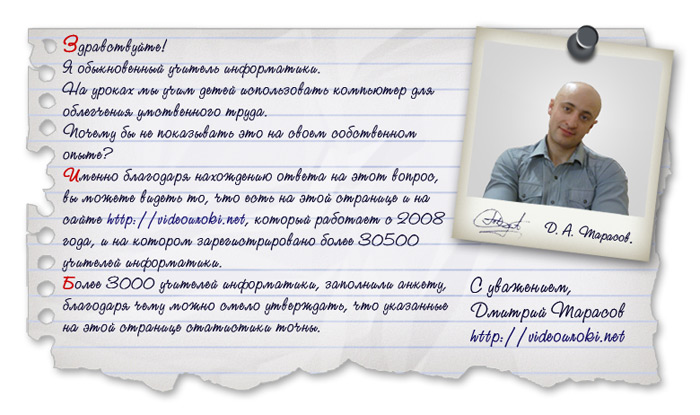 Здравствуйте!
Я обыкновенный учитель информатики.
На уроках мы учим детей использовать компьютер для
облегчения умственного труда.
Почему бы не показывать это на своем собственном
опыте?
Именно благодаря нахождению ответа на этот вопрос,
вы можете видеть то, что есть на этой странице и на
сайте http://videouroki.net, который работает с 2008
года, и на котором зарегистрировано более 30500
учителей информатики.
Более 3000 учителей информатики, заполнили анкету,
благодаря чему можно смело утверждать, что указанные
на этой странице статистики точны.
Д. А. Тарасов.
С уважением,
Дмитрий Тарасов
http://videouroki.net